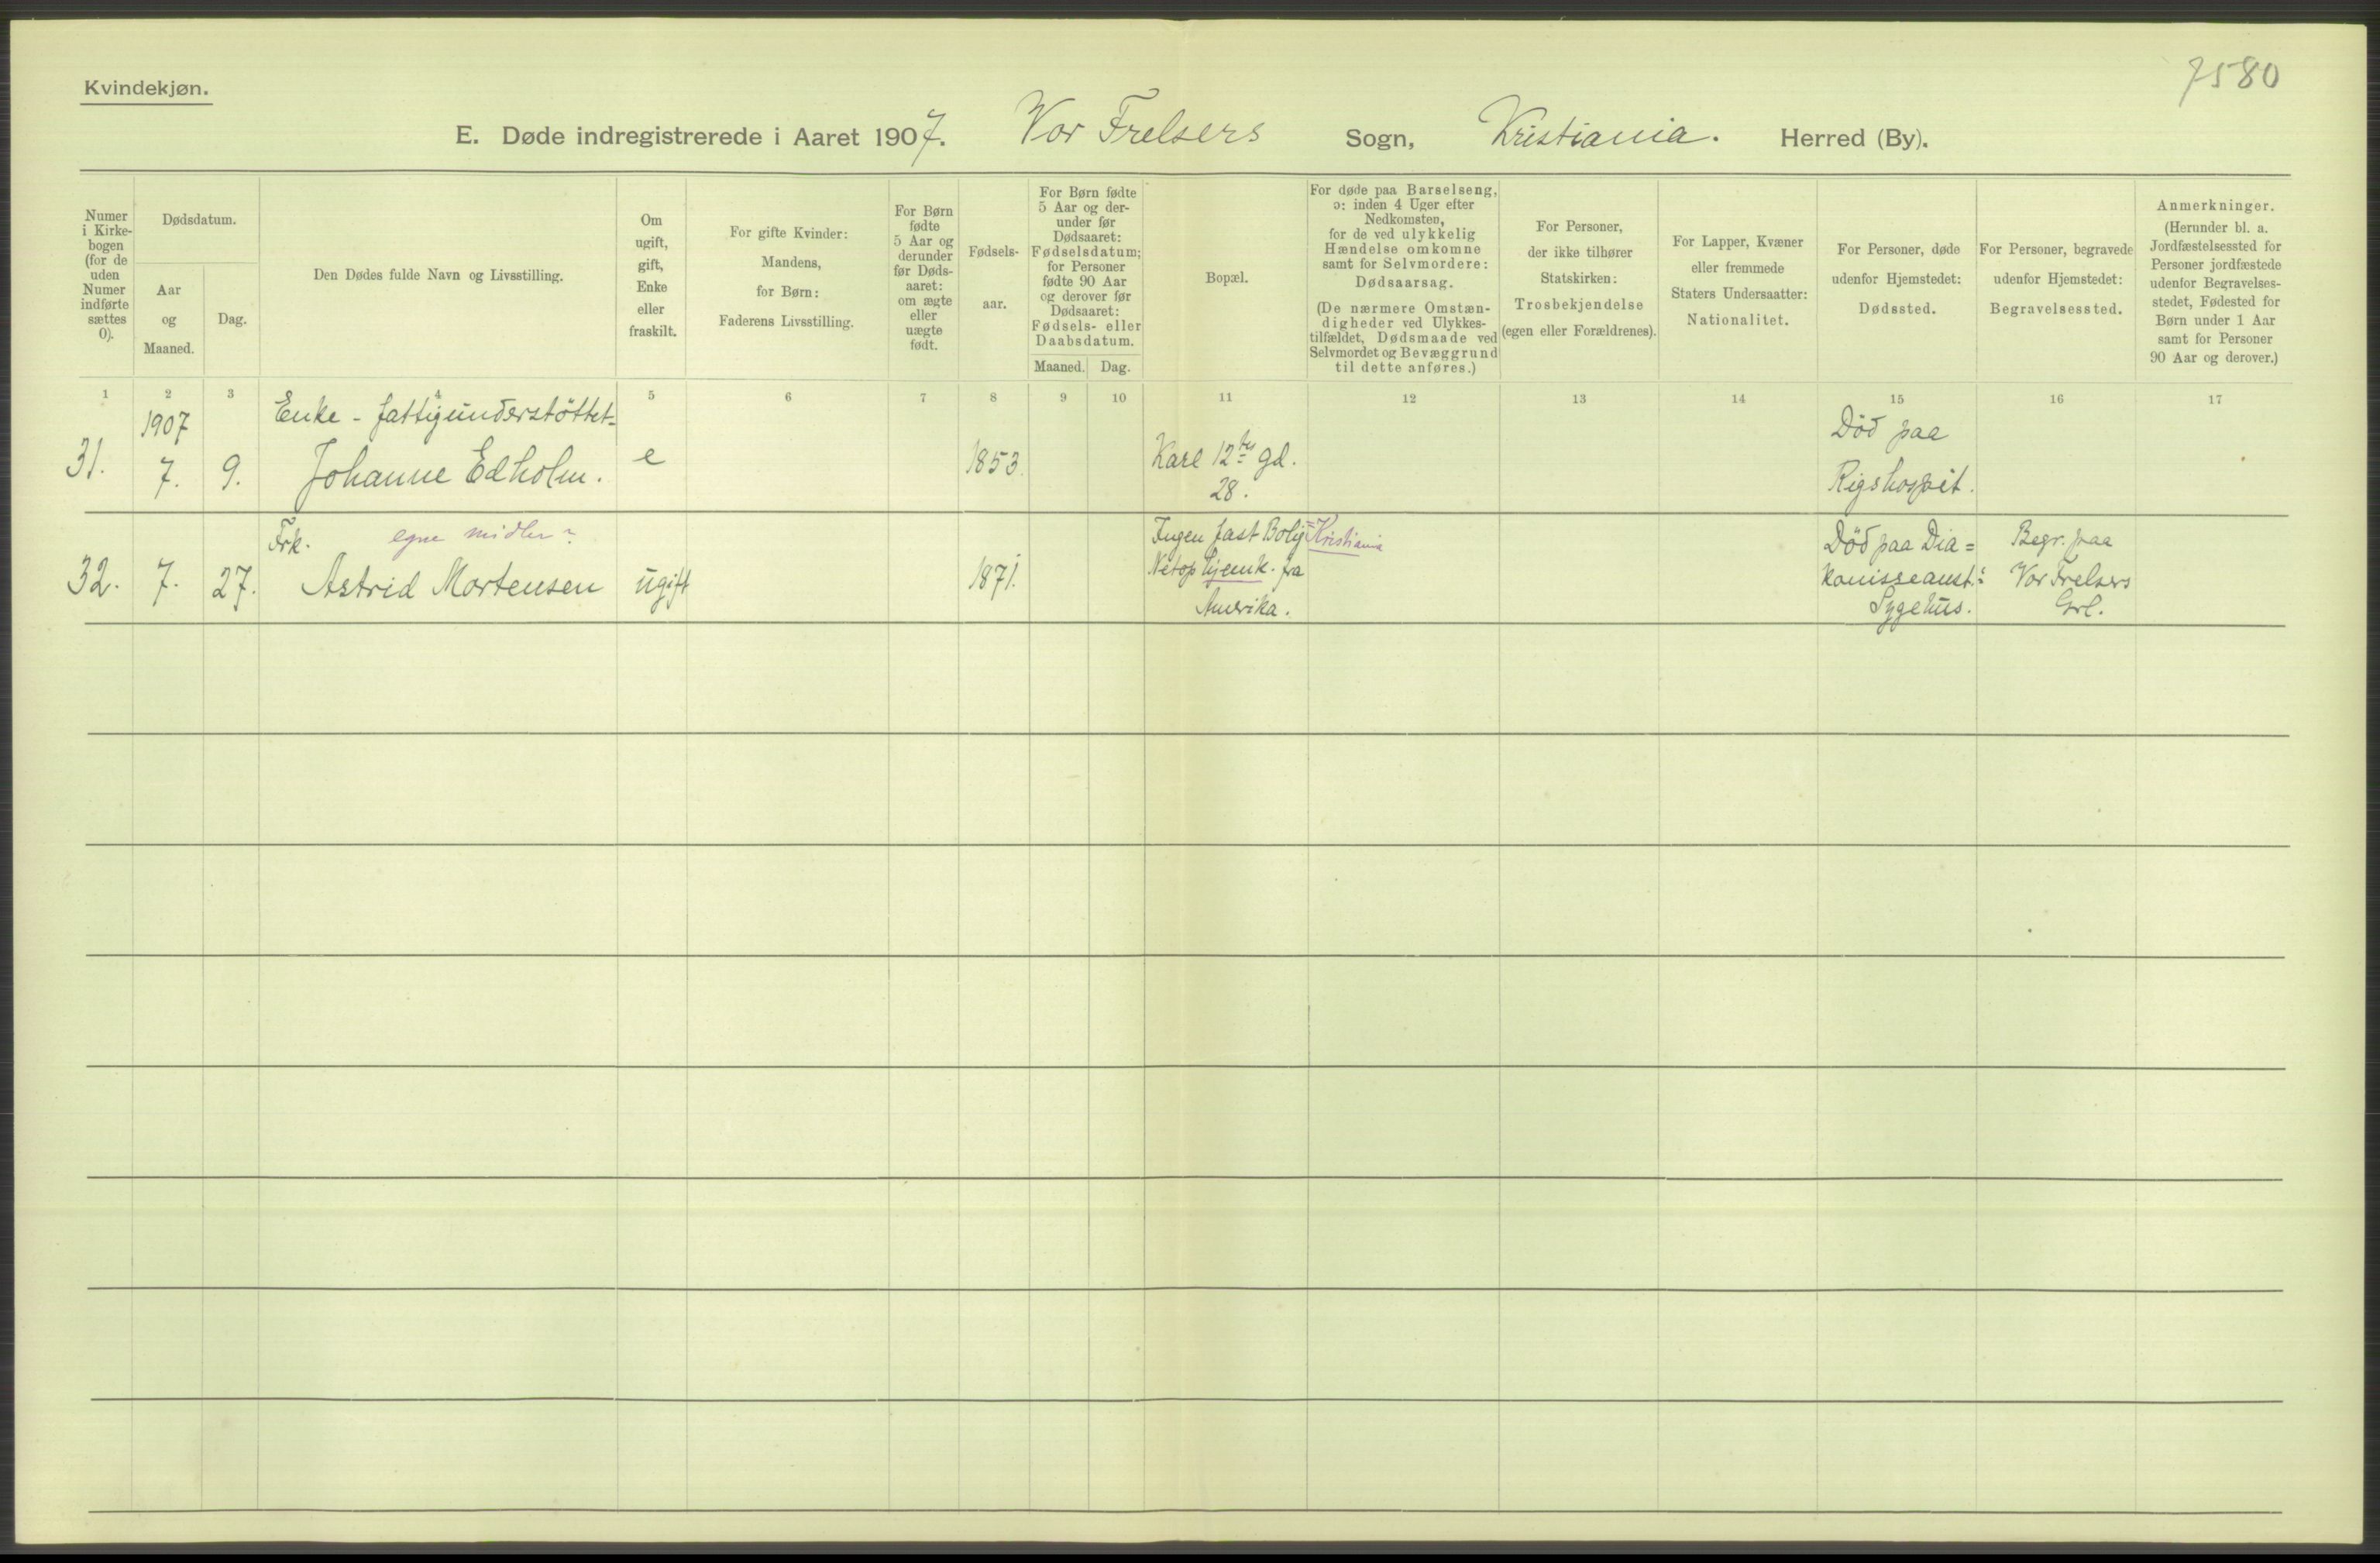 7580
Kvindekjøn.
E. Døde indregistrerede i Aaret 1907. Vor Frelsers Sogn, Kristiania. Herred (By).
Numer
i Kirke-
bogen
(for de
uden
Numer
indførte
sættes
0).
Dødsdatum.
Aar
og
Maaned.
Dag.
Den Dødes fulde Navn og Livsstilling.
Om
ugift,
gift,
Enke
eller
fraskilt.
For gifte Kvinder:
Mandens,
for Børn:
Faderens Livsstilling.
For Børn
fødte
5 Aar og
derunder
før Døds-
aaret:
om ægte
eller
uægte
født.
Fødsels-
aar.
For Børn fødte
5 Aar og der-
under før
Dødsaaret:
Fødselsdatum;
for Personer
fødte 90 Aar
og derover før
Dødsaaret:
Fødsels- eller
Daabsdatum.
Maaned.
Dag.
Bopæl.
For døde paa Barselseng,
ɔ: inden 4 Uger efter
Nedkomsten,
for de ved ulykkelig
Hændelse omkomne
samt for Selvmordere:
Dødsaarsag.
(De nærmere Omstæn-
digheder ved Ulykkes-
tilfældet, Dødsmaade ved
Selvmordet og Bevæggrund
til dette anføres.)
For Personer,
der ikke tilhører
Statskirken:
Trosbekjendelse
(egen eller Forældrenes).
For Lapper, Kvæner
eller fremmede
Staters Undersaatter:
Nationalitet.
For Personer, døde
udenfor Hjemstedet:
Dødssted.
For Personer, begravede
udenfor Hjemstedet:
Begravelsessted.
Anmerkninger.
(Herunder bl. a.
Jordfæstelsessted for
Personer jordfæstede
udenfor Begravelses-
stedet, Fødested for
Børn under 1 Aar
samt for Personer
90 Aar og derover.)
1 2 3 4 5 6 7 8 9 10 11 12 13 14 15 16 17
31.
1907
7.
9.
Enke - fattigunderstöttet-
Johanne Edholm.
e
1853.
Karl 12tes gd.
28.
Död paa
Rigshospit.
32.
7.
27.
Frk. egne midler?
Astrid Mortensen
ugift
1871.
Ingen fast Bolig = Kristiania
Netop hjemk. fra
Amerika.
Död paa Dia=
konisseanst.:
Sygehus.
Begr. paa
Vor Frelsers
Grl.